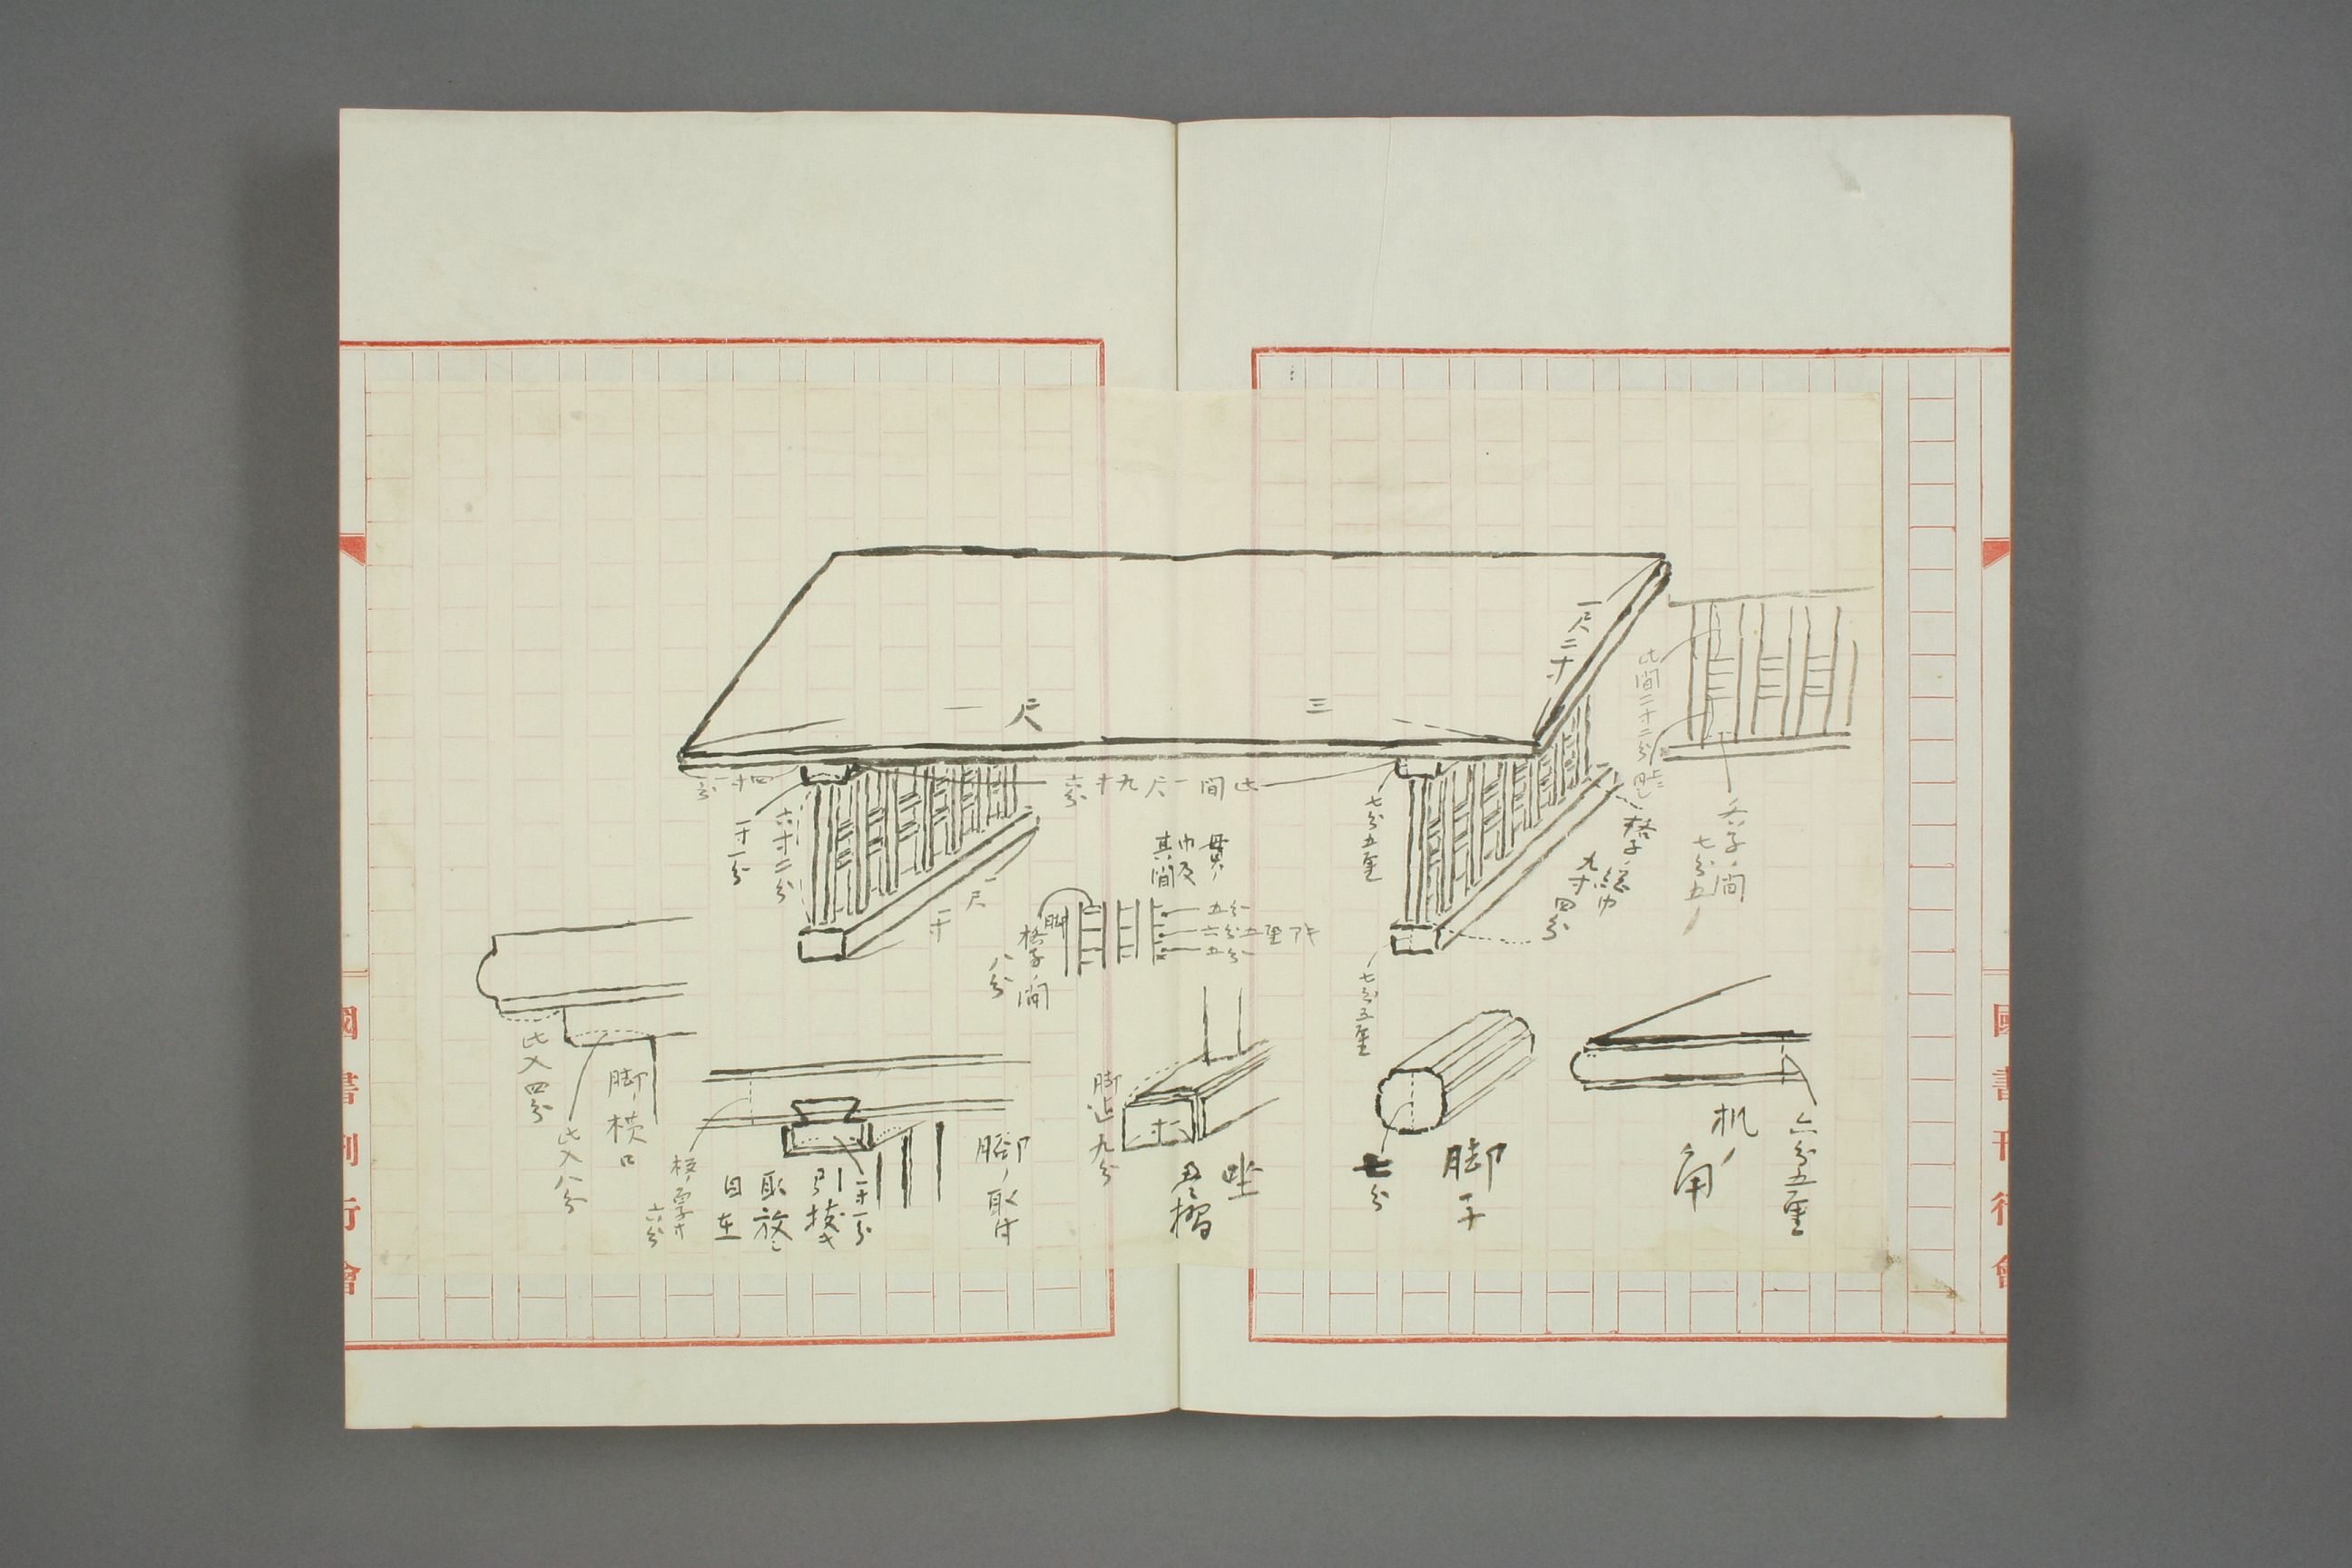 一尺二寸
三尺一
此間一尺九寸六分
四寸一分
一寸一分
六寸二分
一尺一寸
七分五厘
七分五厘
格子ノ総巾
九寸四分
七分五
貫ノ
巾及
其間
五分
六分五厘
五分
脚
格子ノ間
八分
机ノ
角
六分五厘
脚子
七分
坐
畳摺
脚ノ取付
一寸一分
引抜
取放シ
自在
六分
脚ノ横口
此入四分
此入八分
國書刊行會
國書刊行會